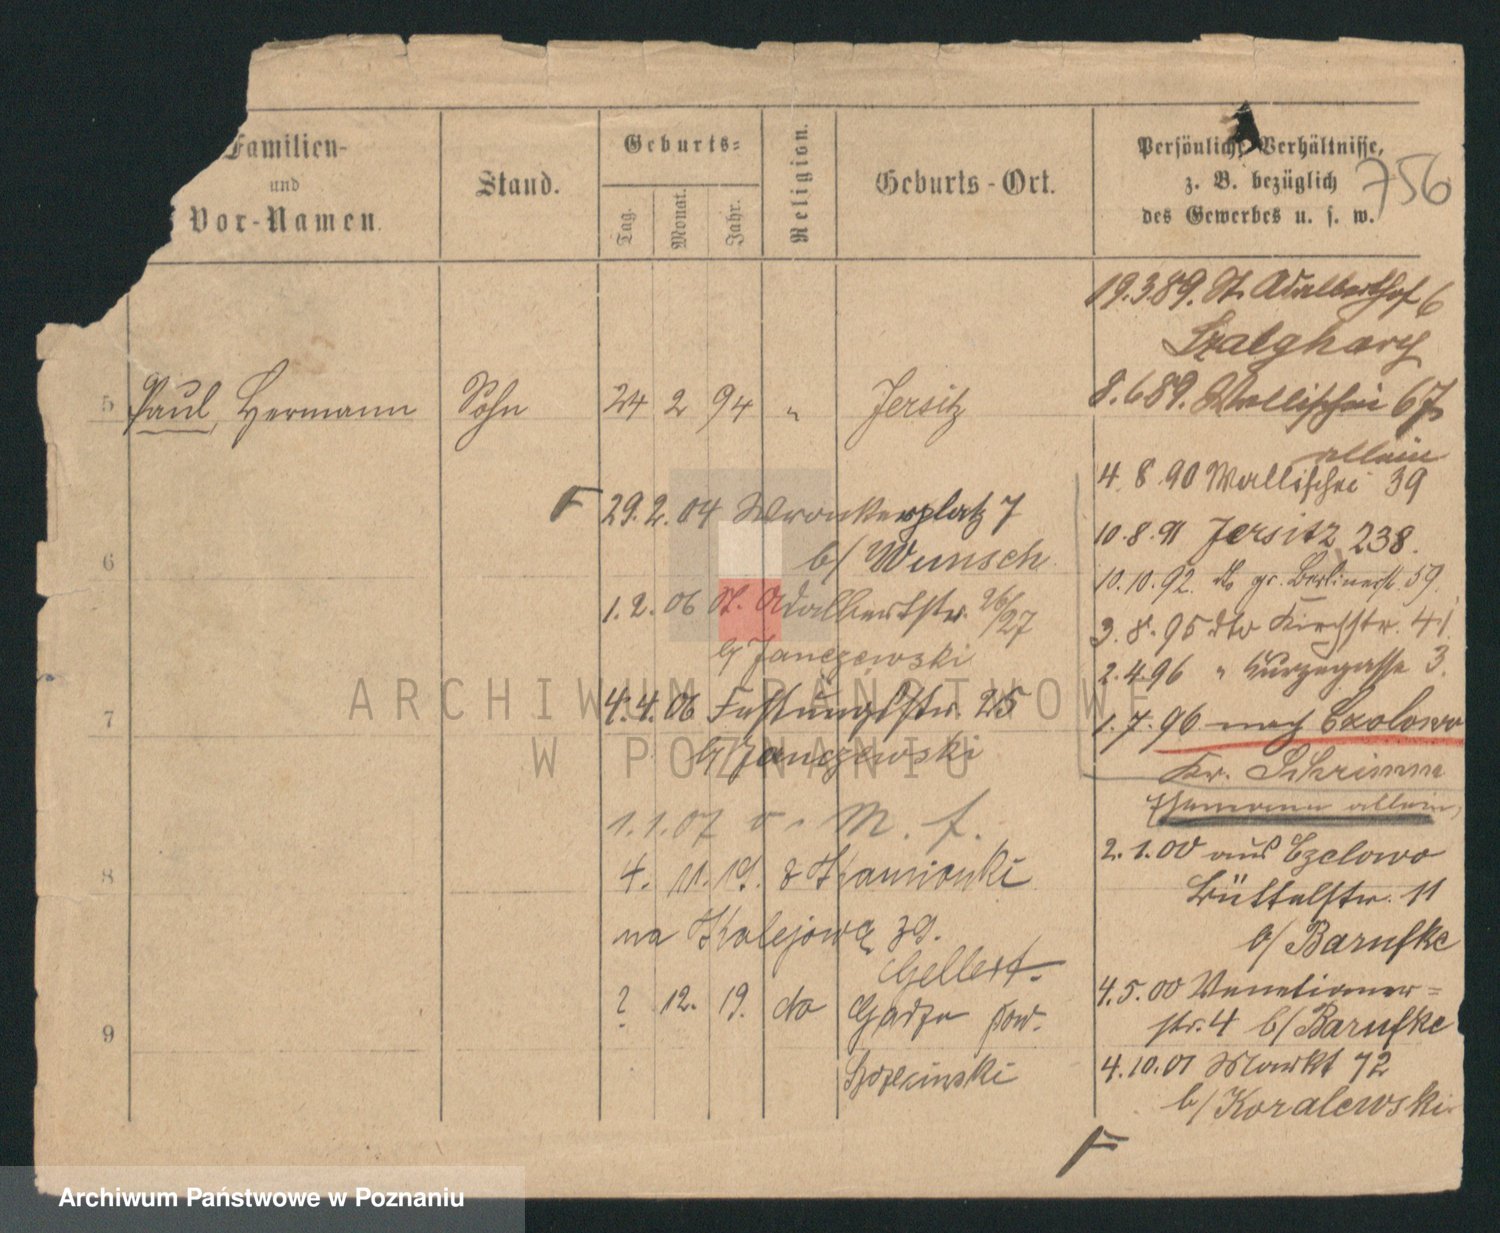 Familien-
und
Vor-Namen.
Stand.
Geburts-
Tag.
Monat.
Jahr.
Religion.
Geburts-Ort.
Persönliche Verhältnisse,
z. B. bezüglich
des Gewerbes u. s. w.
756
5 Paul, Hermann Sohn 24 2 94 " Jersitz
6
7
8
9
F 29.2.04 Wronkerplatz 7
b/ Wunsch
1.2.06 St. Adalbertstr. 26/27
b/ Janczewski
4.4.06 Festungsstr. 25
b/ Janczewski
1.1.07 v. M. f.
4. 11. 19. z Kamionki
na Kolejową 39.
Gellert.
? 12. 19. do pow.
19.3.89. St. Adalberthof 6
8.6.89. Wallischei 67
allein
4 8 90 Wallischei 39
10.8.91 Jersitz 238.
10.10.92. dto gr. Berlinerst 59.
3.8.95 dto Kirchstr. 41.
2.4.96 " Kurzegasse 3.
1.7.96 nach Czolowo
Kr. Schrimm
Ehemann allein,
2.1.00 aus Czolowo
Büttelstr. 11
b/ Barufke
4.5.00 Venetianer-
str. 4 b/ Barufke
4.10.01 Markt 72
b/ Koralewski
F
ARCHIWUM PAŃSTWOWE
W POZNANIU
Archiwum Państwowe w Poznaniu